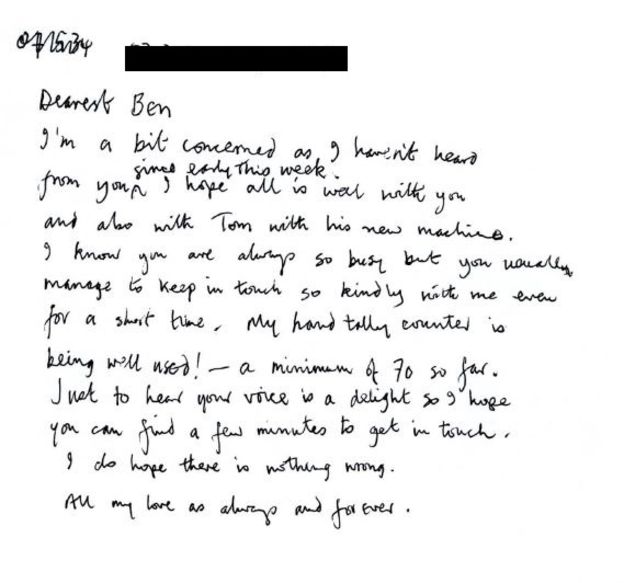 Dearest Ben
I'm a bit concerned as I haven't heard
since early this week.
from you, I hope all is well with you
and also with Tom with his new machine.
I know you are always so busy but you usually
manage to keep in touch so kindly with me even
for a short time. My hand tally counter is
being well used! — a minimum of 70 so far.
Just to hear your voice is a delight so I hope
you can find a few minutes to get in touch.
I do hope there is nothing wrong.
All my love as always and for ever.